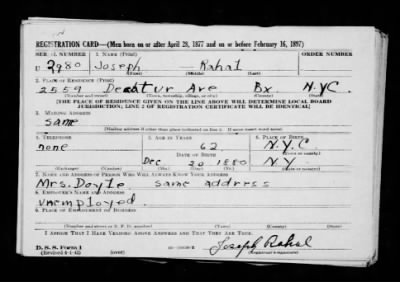 REGISTRATION CARD—(Men born on or after April 28, 1877 and on or before February 16, 1897)
SERIAL NUMBER 1. NAME (Print) ORDER NUMBER
U 2980 Joseph — Rahal
(First) (Middle) (Last)
2. PLACE OF RESIDENCE (Print)
2559 Decatur Ave Bx. N.Y.C.
(Number and street) (Town, township, village, or city) (County) (State)
[THE PLACE OF RESIDENCE GIVEN ON THE LINE ABOVE WILL DETERMINE LOCAL BOARD
JURISDICTION; LINE 2 OF REGISTRATION CERTIFICATE WILL BE IDENTICAL]
3. MAILING ADDRESS
same
[Mailing address if other than place indicated on line 2. If same insert word same]
4. TELEPHONE 5. AGE IN YEARS 6. PLACE OF BIRTH
none 62 N.Y.C.
DATE OF BIRTH (Town or county)
Dec 20 1880 N.Y
(Exchange) (Number) (Mo.) (Day) (Yr.) (State or country)
7. NAME AND ADDRESS OF PERSON WHO WILL ALWAYS KNOW YOUR ADDRESS
Mrs. Doyle same address
8. EMPLOYER'S NAME AND ADDRESS
unemployed
9. PLACE OF EMPLOYMENT OR BUSINESS
(Number and street or R. F. D. number) (Town) (County) (State)
I AFFIRM THAT I HAVE VERIFIED ABOVE ANSWERS AND THAT THEY ARE TRUE.
D. S. S. Form 1
(Revised 4-1-42) (Registrant's signature)
Joseph Rahal